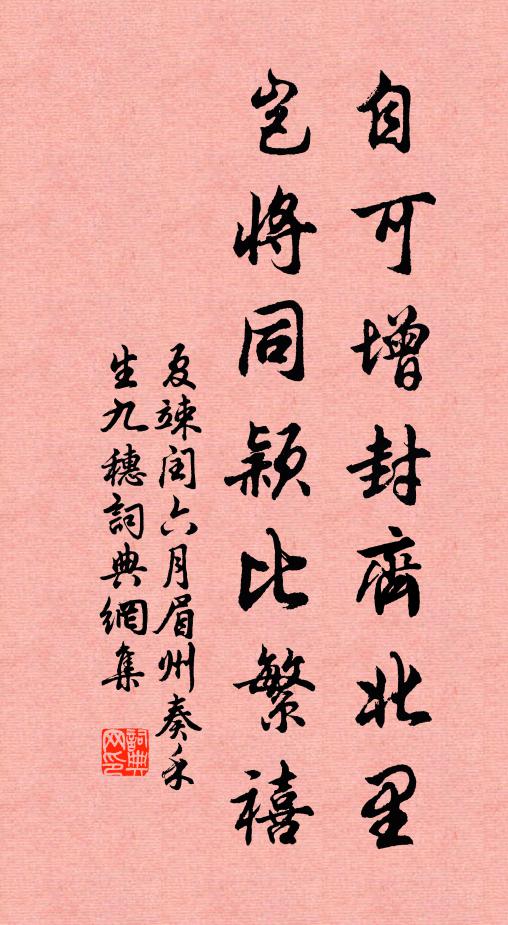 自可增封齊北里
豈將同颖比繁禧
夏竦閏六月眉州奏禾
生九穗詞典網集
詞典
网印